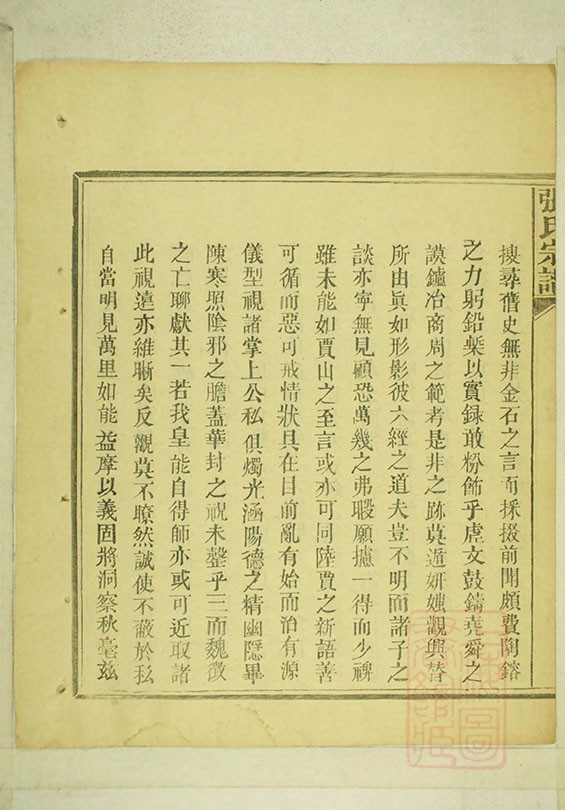 張氏宗譜
搜尋舊史無非金石之言而採掇前聞頗費陶鎔
之力躬鉛槧以實録敢粉飾乎虛文鼓鑄堯舜之
謨鑪冶商周之範考是非之跡莫遁妍媸觀興替
所由眞如形影彼六經之道夫豈不明而諸子之
談亦寧無見顧恐萬幾之弗暇願攄一得而少裨
雖未能如賈山之至言或亦可同陸賈之新語善
可循而惡可戒情狀具在目前亂有始而治有源
儀型視諸掌上公私俱燭光涵陽德之精幽隱畢
陳寒照陰邪之膽蓋華封之祝未罄乎三而魏徵
之亡聊獻其一若我皇能自得師亦或可近取諸
此視遠亦維晰矣反觀莫不瞭然誠使不蔽於私
自當明見萬里如能益摩以義固將洞察秋毫玆